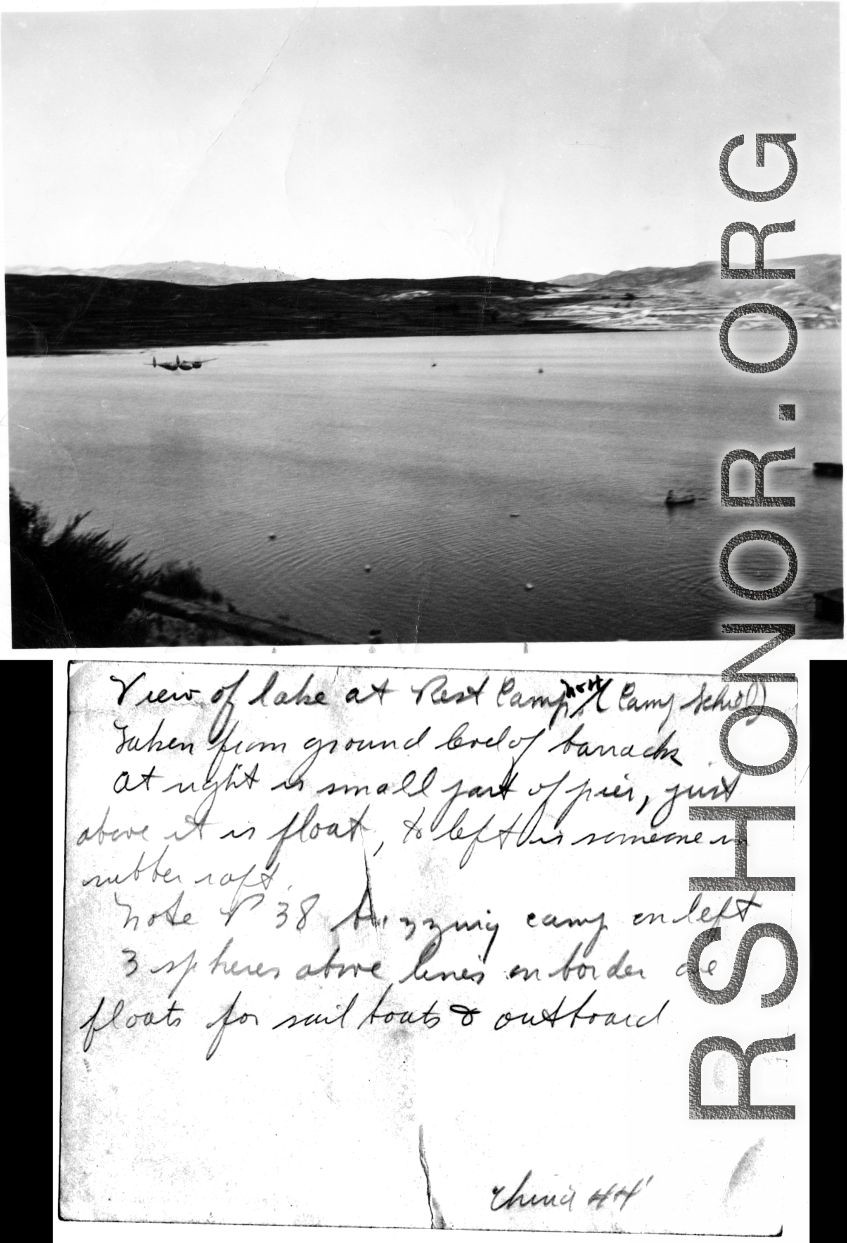 View of lake at Rest Camp (Camp Schiel)
Taken from ground level of barracks
At right is small part of pier, just
above it is float, to left is someone in
rubber raft.
Note P 38 buzzing camp on left
3 spheres above lines on border are
floats for sail boats & outboard
China 44'
RSHONOR.ORG